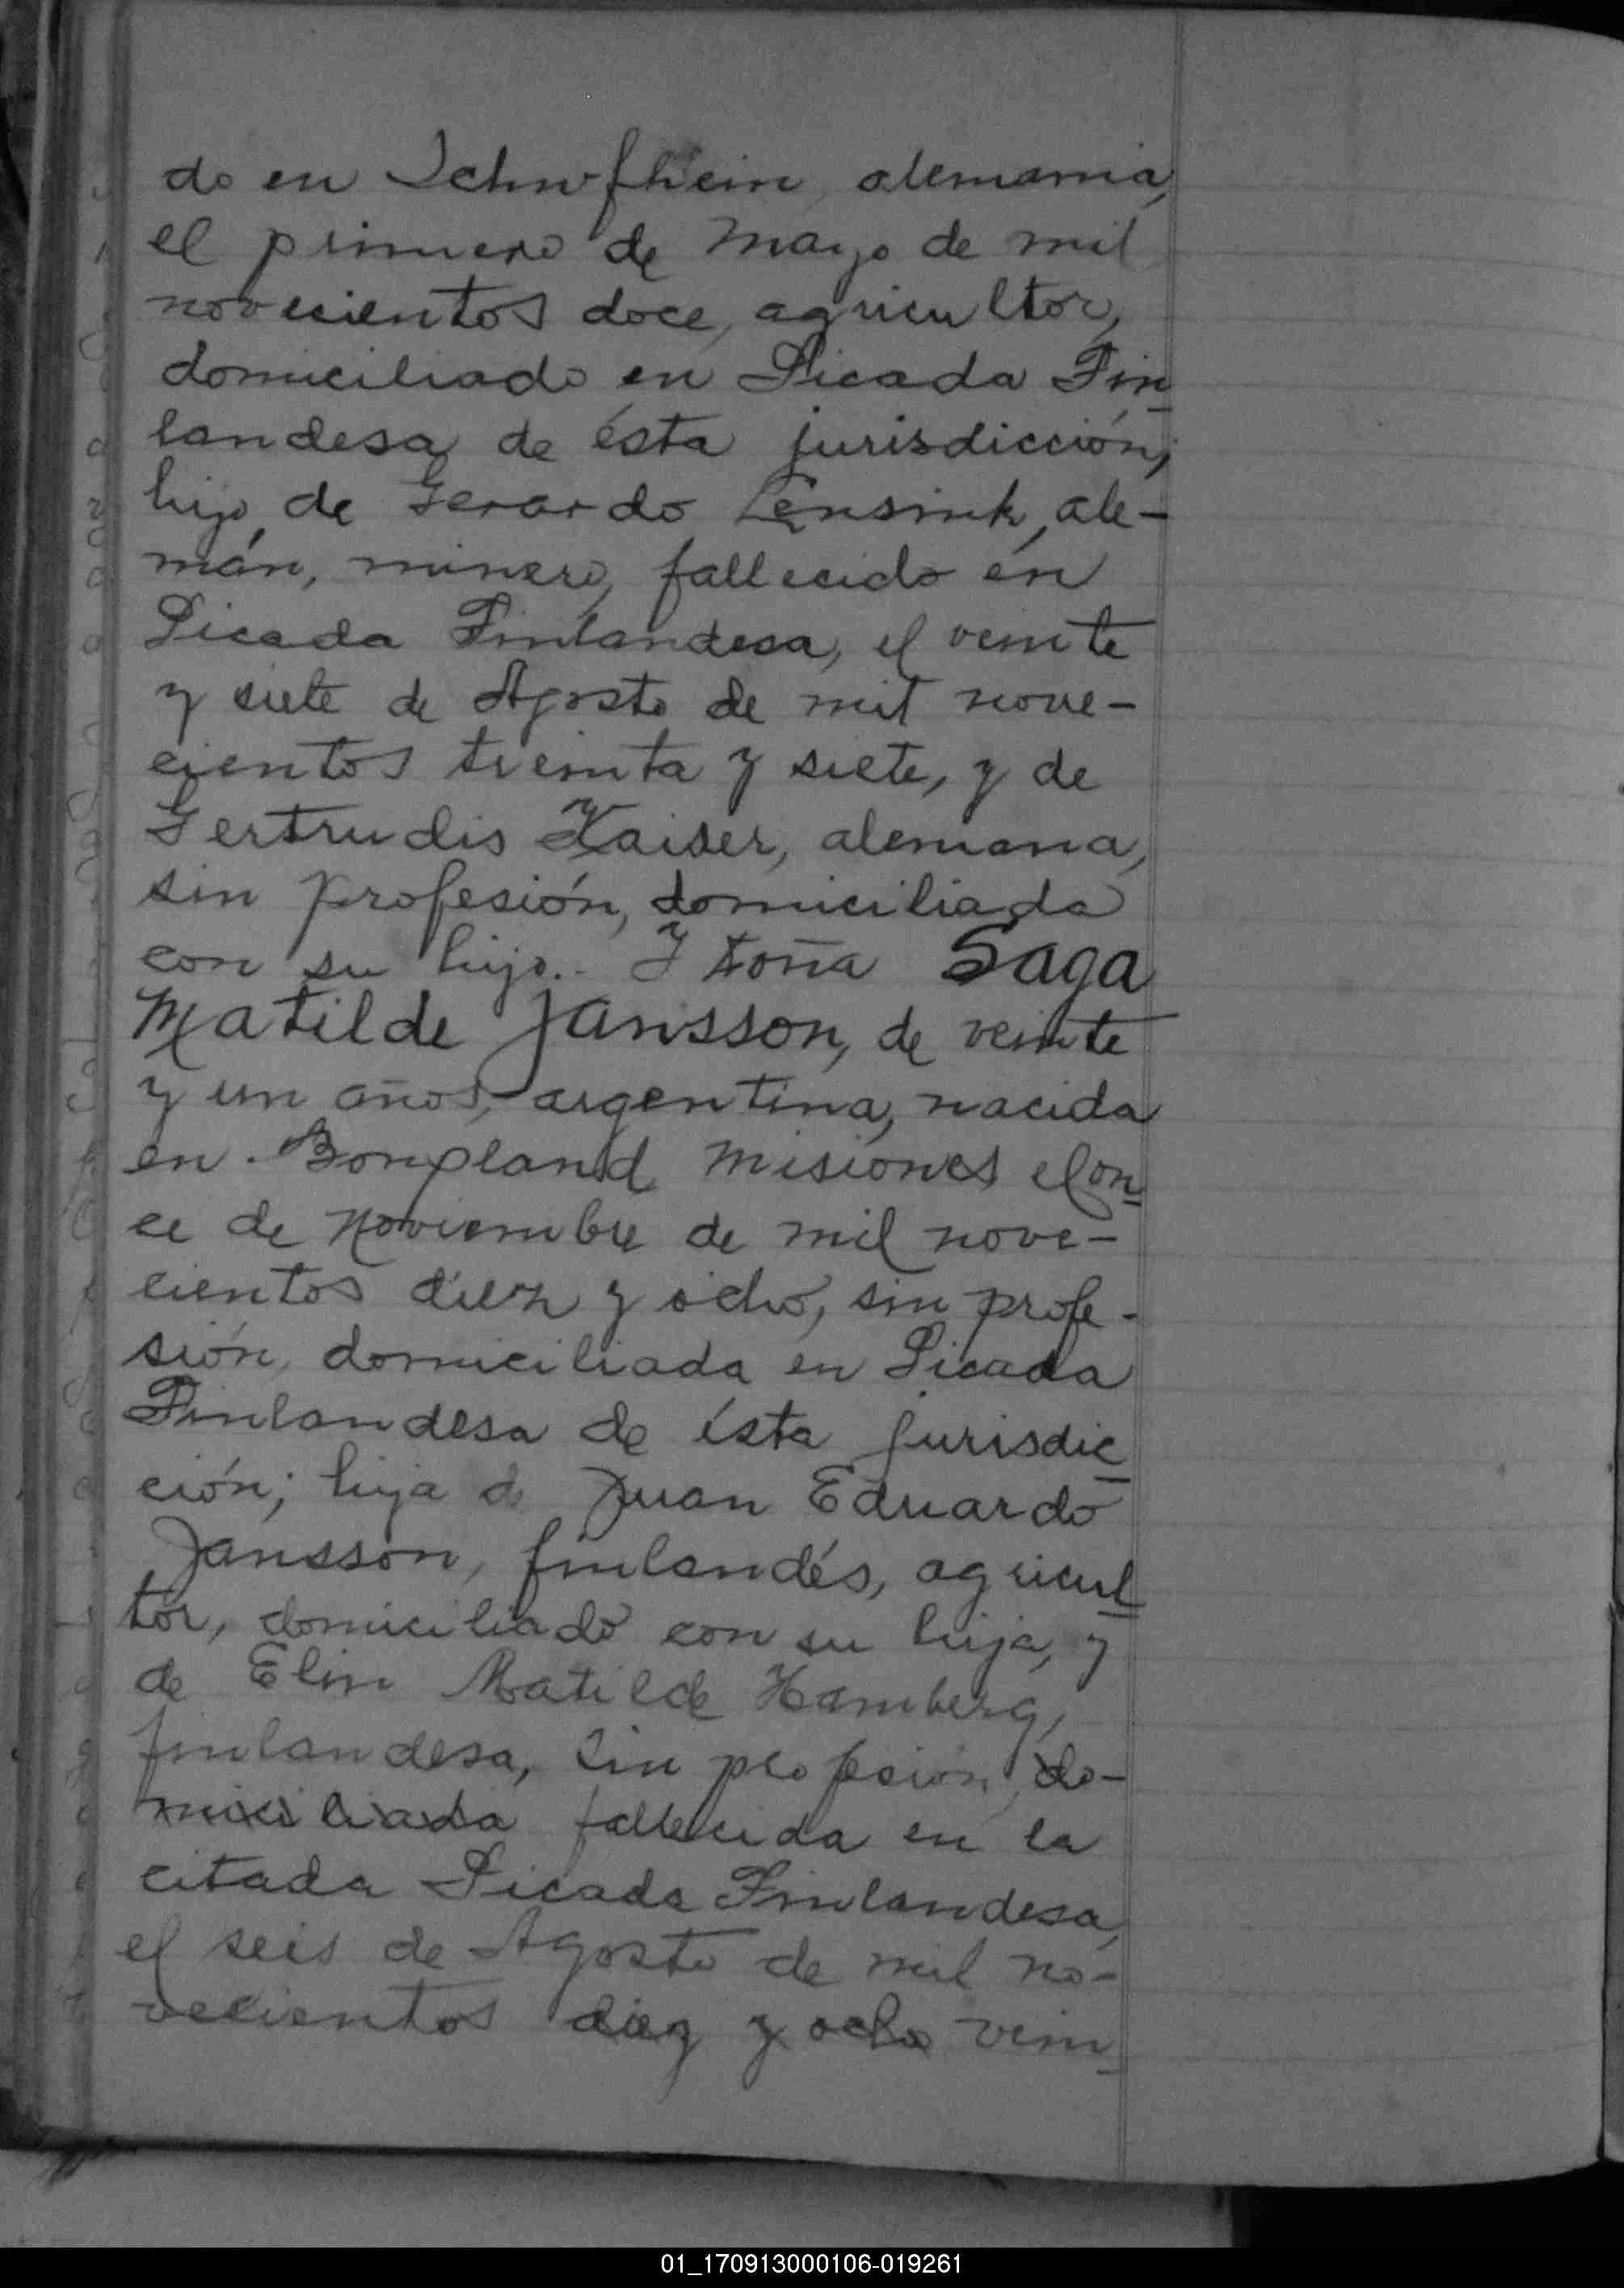 do en Schwfhein, alemania,
el primero de Mayo de mil
novecientos doce, agricultor,
domiciliado en Picada Fin
landesa de ésta jurisdicción,
hijo de Gerardo Lensink, ale-
mán, minero, fallecido en
Picada Finlandesa, el veinte
y siete de Agosto de mil nove-
cientos treinta y siete, y de
Gertrudis Kaiser, alemana,
sin profesión, domiciliada
con su hijo.- Y Doña Saga
Matilde Jansson, de veinte
y un años, argentina, nacida
en Bonpland Misiones el on
ce de Noviembre de mil nove-
cientos diez y ocho, sin profe-
sión, domiciliada en Picada
Finlandesa de ésta jurisdic
ción; hija de Juan Eduardo
Jansson, finlandés, agricul
tor, domiciliado con su hija, y
de Elin Matilde Hamberg,
finlandesa, sin profesion, do-
miciliada fallecida en la
citada Picada Finlandesa,
el seis de Agosto de mil no-
vecientos diez y ocho vein
01_170913000106-019261